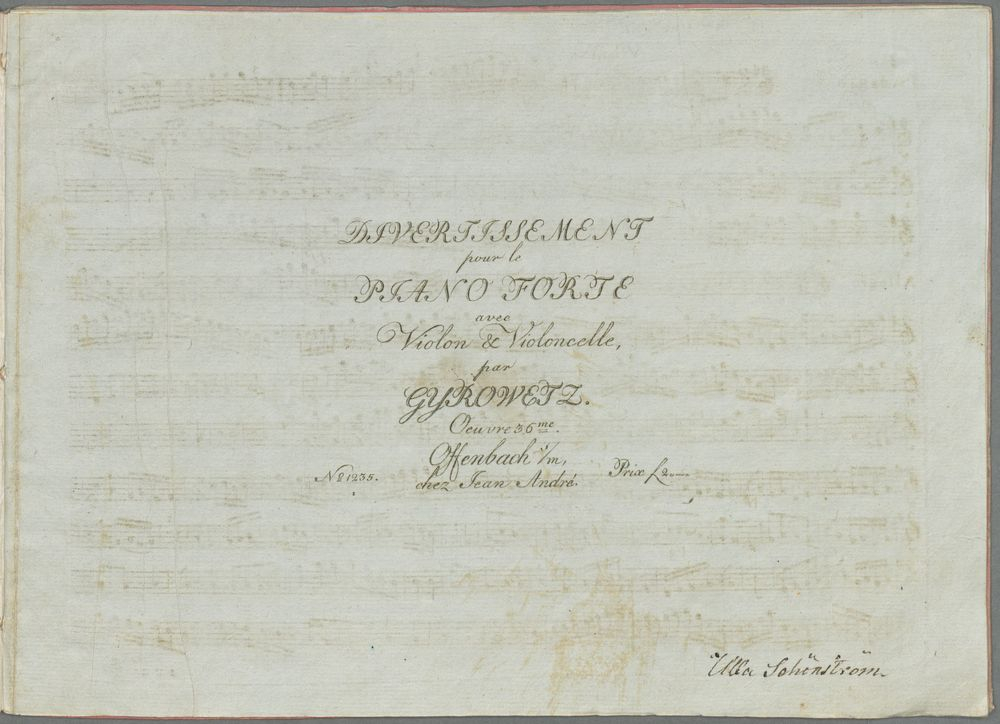 DIVERTISSEMENT
pour le
PIANO FORTE
avec
Violon & Violoncelle,
par
GYROWETZ.
Oeuvre 36me.
Offenbach s/m,
No 1235. chez Jean André. Prix f 2.
Ulla Schenström.